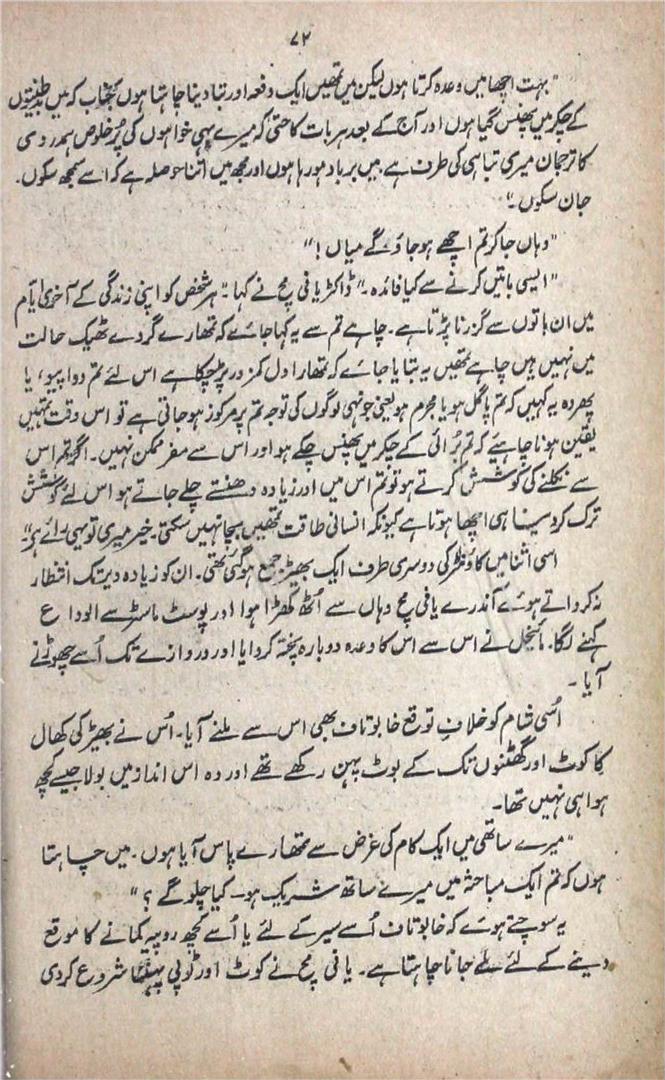 ۷۲
"بہت اچھا میں وعدہ کرتا ہوں لیکن میں تمھیں ایک دفعہ اور بتا دینا چاہتا ہوں جناب کہ میں بدطینتوں
کے چکر میں پھنس گیا ہوں اور آج کے بعد ہر بات کا حتیٰ کہ میرے بہی خواہوں کی پُر خلوص ہمدردی
کا ترجمان میری تباہی کی طرف ہے میں برباد ہو رہا ہوں اور مجھ میں اتنا حوصلہ ہے کہ اسے سمجھ سکوں۔
جان سکوں۔"
"وہاں جا کر تم اچھے ہو جاؤ گے میاں!"
"ایسی باتیں کرنے سے کیا فائدہ۔" ڈاکٹر یافی مچ نے کہا۔ "ہر شخص کو اپنی زندگی کے آخری ایام
میں ان باتوں سے گزرنا پڑتا ہے۔ چاہے تم سے یہ کہا جائے کہ تمھارے گردے ٹھیک حالت
میں نہیں ہیں چاہے تمھیں یہ بتایا جائے کہ تمھارا دل کمزور پڑ چکا ہے اس لئے تم دوا پیو، یا
پھر وہ یہ کہیں کہ تم پاگل ہو یا مجرم ہو یعنی جونہی لوگوں کی توجہ تم پر مرکوز ہو جاتی ہے تو اس وقت تمہیں
یقین ہونا چاہیئے کہ تم بُرائی کے چکر میں پھنس چکے ہو اور اس سے مفر ممکن نہیں۔ اگر تم اس
سے نکلنے کی کوشش کرتے ہو تو تم اس میں اور زیادہ دھنستے چلے جاتے ہو اس لئے کوشش
ترک کر دینا ہی اچھا ہوتا ہے کیونکہ انسانی طاقت تمھیں بچا نہیں سکتی۔ خیر میری تو یہی رائے ہے۔"
اسی اثنا میں کاؤنٹر کی دوسری طرف ایک بھیڑ جمع ہو گئی تھی۔ ان کو زیادہ دیر تک انتظار
نہ کرواتے ہوئے آندرے یافی مچ وہاں سے اُٹھ کھڑا ہوا اور پوسٹ ماسٹر سے الوداع
کہنے لگا۔ مائیخل نے اس سے اس کا وعدہ دوبارہ پختہ کروایا اور دروازے تک اُسے چھوڑنے
آیا۔
اُسی شام کو خلافِ توقع خابوتاف بھی اس سے ملنے آیا۔ اُس نے بھیڑ کی کھال
کا کوٹ اور گھٹنوں تک کے بوٹ پہن رکھے تھے اور وہ اس انداز میں بولا جیسے کچھ
ہوا ہی نہیں تھا۔
"میرے ساتھی میں ایک کام کی غرض سے تمھارے پاس آیا ہوں۔ میں چاہتا
ہوں کہ تم ایک مباحثہ میں میرے ساتھ شریک ہو — کیا چلو گے؟"
یہ سوچتے ہوئے کہ خابوتاف اُسے سیر کے لئے یا اُسے کچھ روپیہ کمانے کا موقع
دینے کے لئے لے جانا چاہتا ہے۔ یافی مچ نے کوٹ اور ٹوپی پہننا شروع کر دی